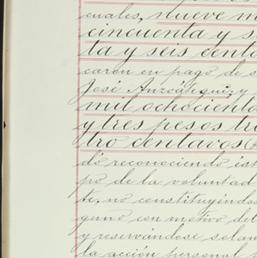 cuales, nueve m
cincuenta y s
ta y seis centa
caron en pago de s
José Anzoátegui y
mil ochocient
y tres pesos tre
tro centavos
dó reconociendo ést
po de la voluntad
te, no constituyéndos
guno con motivo del
y reservándose solam
la acción personal